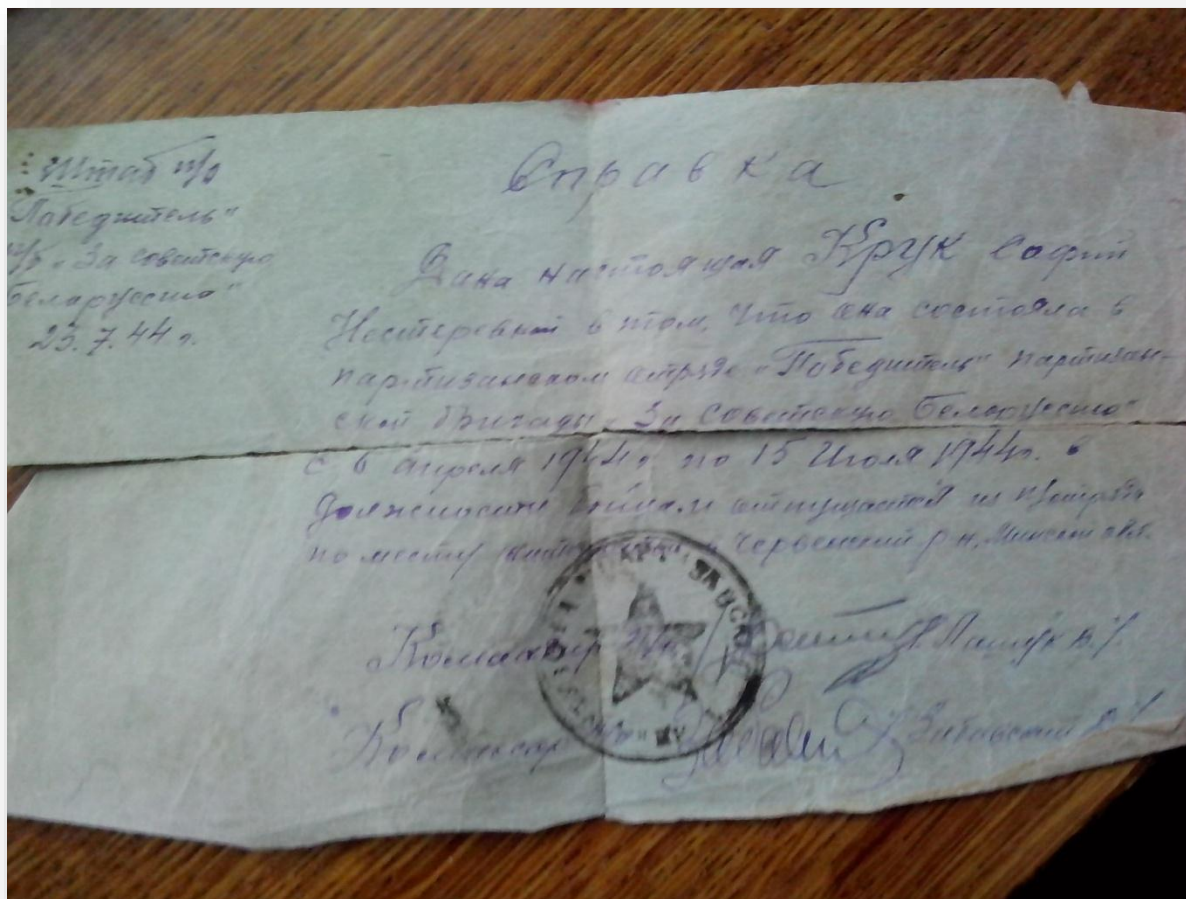 Штаб п/о
"Победитель"
п/б "За советскую
Беларуссию"
23.7.44 г.
Справка
Дана настоящая Крук Софии
Нестеровной в том, что она состояла в
партизанском отряде "Победитель" партизан-
ской бригады "За Советскую Белоруссию"
с 6 апреля 1944 г. по 15 Июля 1944 г. в
должности бойца и отпущается из отряда
по месту жительства в Червенский р-н, Минской обл.
Командир п/о
Комиссар п/о